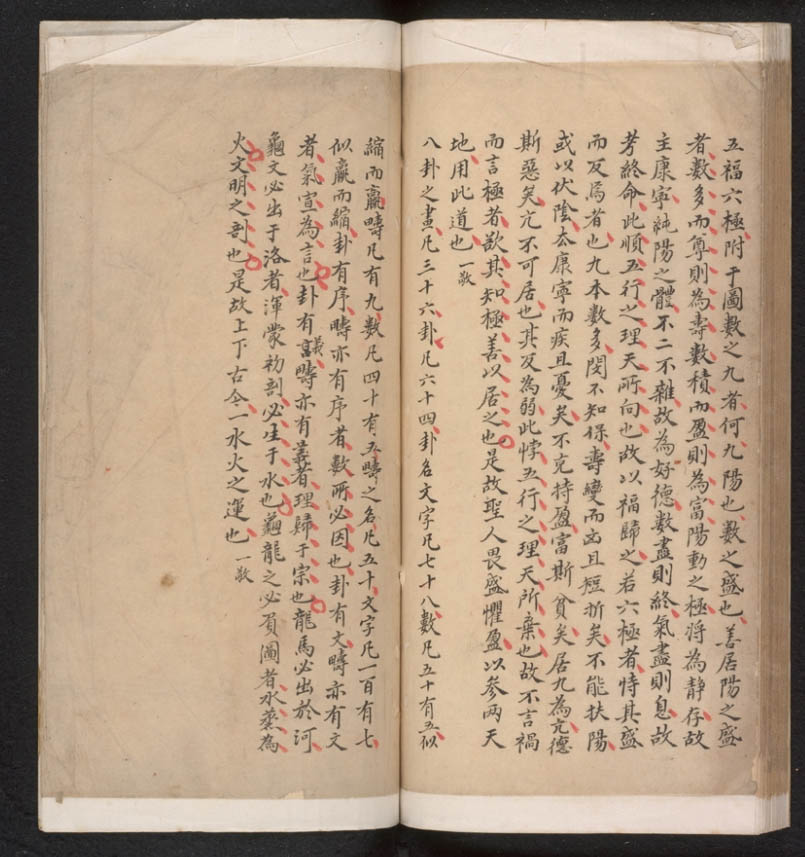 五福六極附于圖數之九者何九陽也數之盛也善居陽之盛
者數多而尊則為壽數積而盈則為富陽動之極將為靜存故
主康寧純陽之體不二不雜故為好德數盡則終氣盡則息故
考終命此順五行之理天所向也故以福歸之若六極者恃其盛
而反焉者也九本數多閔不知保壽變而凶且短折矣不能扶陽
或以伏陰太康寧而疾且憂矣不克持盈富斯貧矣居九為亢德
斯惡矣亢不可居也其反為弱此悖五行之理天所棄也故不言禍
而言極者欲其知極善以居之也是故聖人畏盛懼盈以參兩天
地用此道也 一敬
八卦之畫凡三十六卦凡六十四卦名文字凡七十八數凡五十有五似
縮而贏疇凡有九數凡四十有五疇之名凡五十文字凡一百有七
似贏而縮卦有序疇亦有序者數所必因也卦有文疇亦有文
者氣宣為言也卦有義疇亦有義者理歸于宗也龍馬必出於河
龜文必出于洛者渾蒙初剖必生于水也龜龍之必負圖者水蒸為
火文明之剖也是故上下古今一水火之運也 一敬